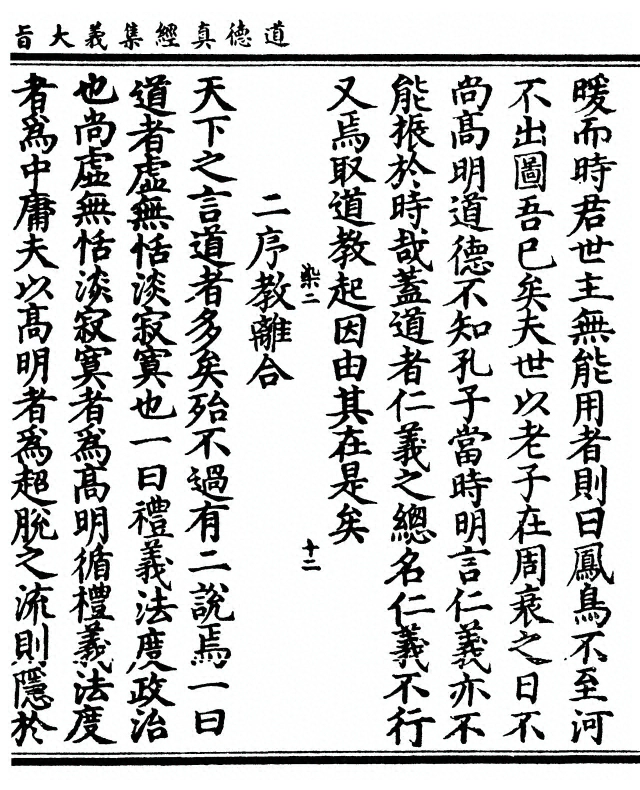 道德真經集義大旨
暖而時君世主無能用者則曰鳳鳥不至河
不出圖吾已矣夫世以老子在周衰之日不
尚高明道德不知孔子當時明言仁義亦不
能振於時哉蓋道者仁義之總名仁義不行
又焉取道教起因由其在是矣
染二
十二
二序教離合
天下之言道者多矣殆不過有二說焉一曰
道者虛無恬淡寂寞也一曰禮義法度政治
也尚虛無恬淡寂寞者為高明循禮義法度
者為中庸夫以高明者為超脫之流則隱於